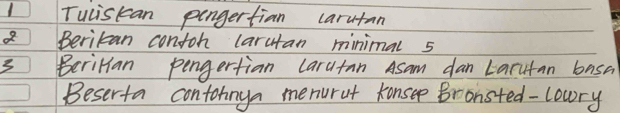 1 Tuliskan pengertian larutan
2 Berikan contoh larutan minimal 5
3 Berikan pengertian larutan Asam dan Larutan basa
Beserta contohnya menurut konsep Bronsted-lowry